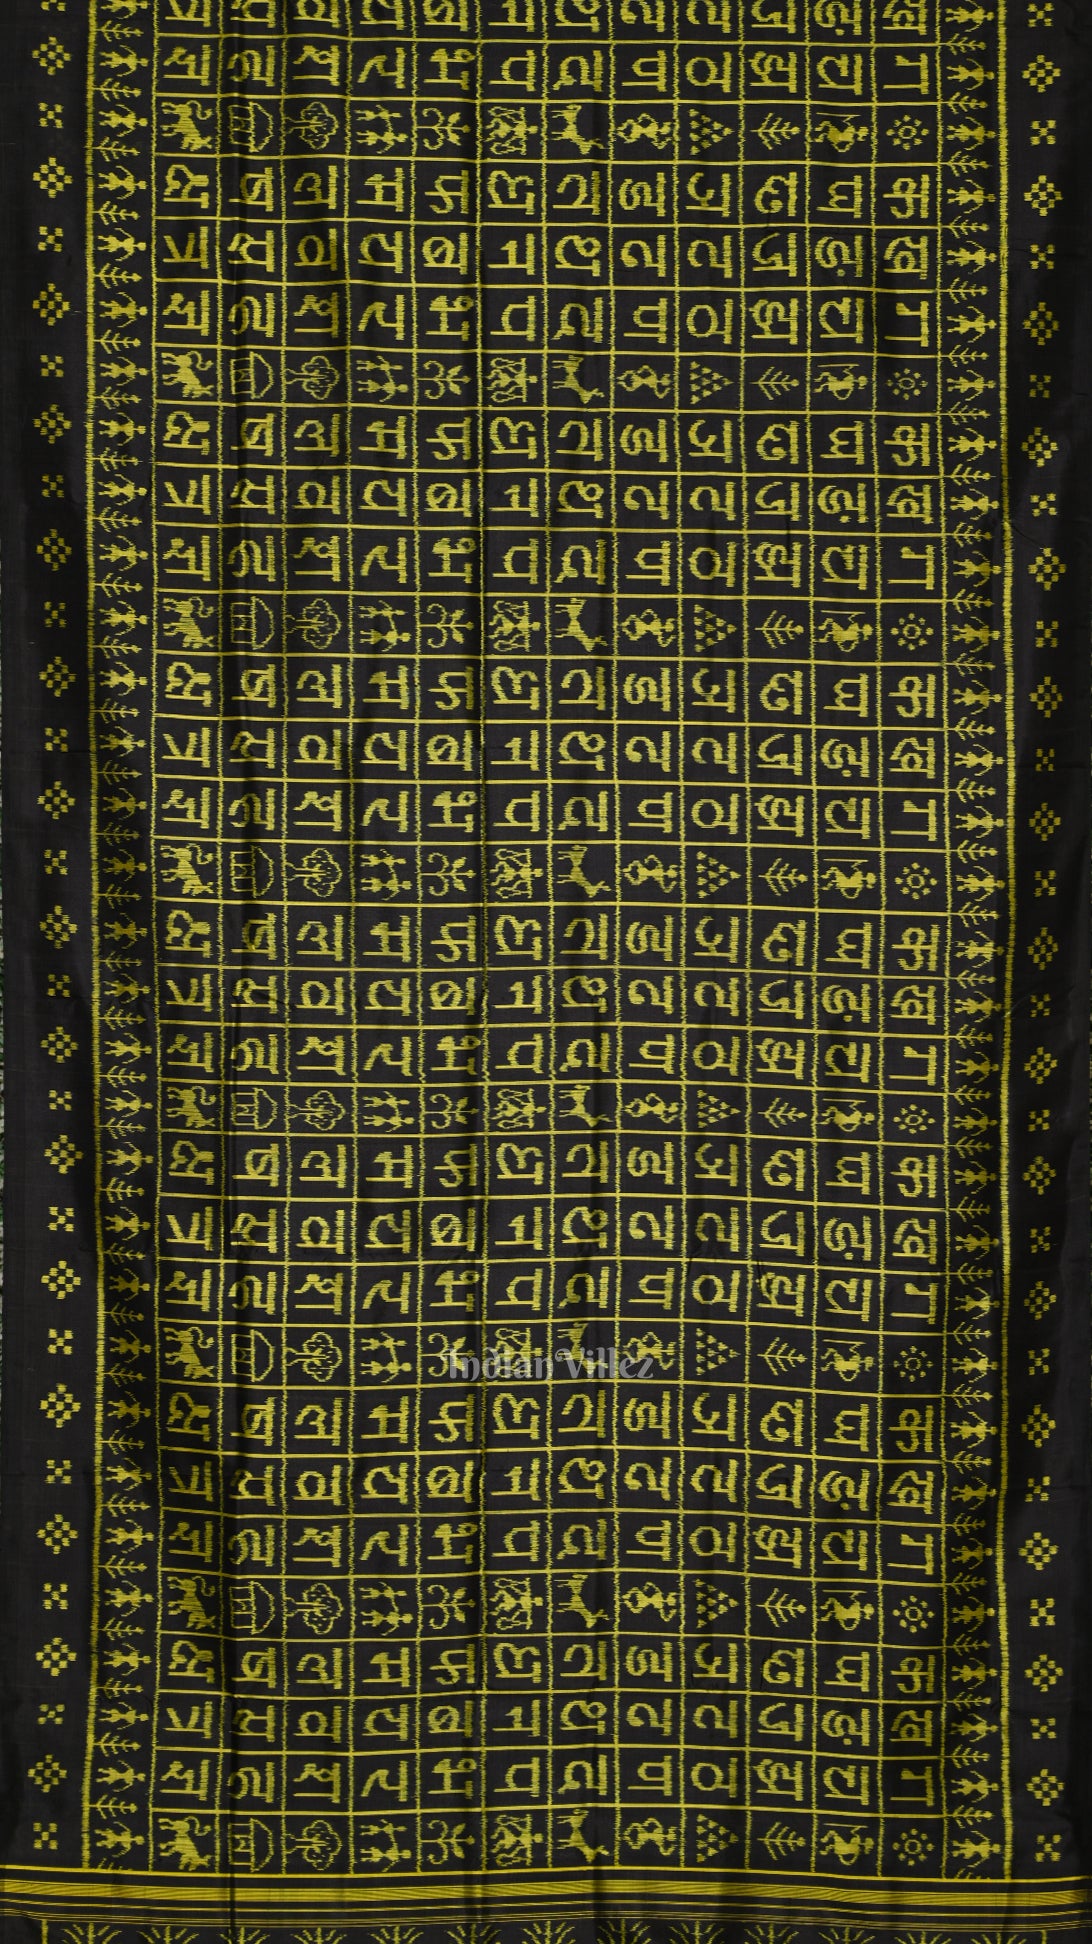 ख ग क ख ग क ख ग क ख ग क ख ग क ख ग क ख ग क ख ग
ङ च घ ङ च घ ङ च घ ङ च घ ङ च घ ङ च घ ङ च घ ङ च
ज झ छ ज झ छ ज झ छ ज झ छ ज झ छ ज झ छ ज झ छ ज झ
ट ठ ञ ट ठ ञ ट ठ ञ ट ठ ञ ट ठ ञ ट ठ ञ ट ठ ञ ट ठ
ढ ण ड ढ ण ड ढ ण ड ढ ण ड ढ ण ड ढ ण ड ढ ण ड ढ ण
थ द त थ द त थ द त थ द त थ द त थ द त थ द त थ द
न प ध न प ध न प ध न प ध न प ध न प ध न प ध न प
ब भ फ ब भ फ ब भ फ ब भ फ ब भ फ ब भ फ ब भ फ ब भ
य र म य र म य र म य र म य र म य र म य र म य र
व श ल व श ल व श ल व श ल व श ल व श ल व श ल व श
स ह ष स ह ष स ह ष स ह ष स ह ष स ह ष स ह ष स ह
Indian Villez